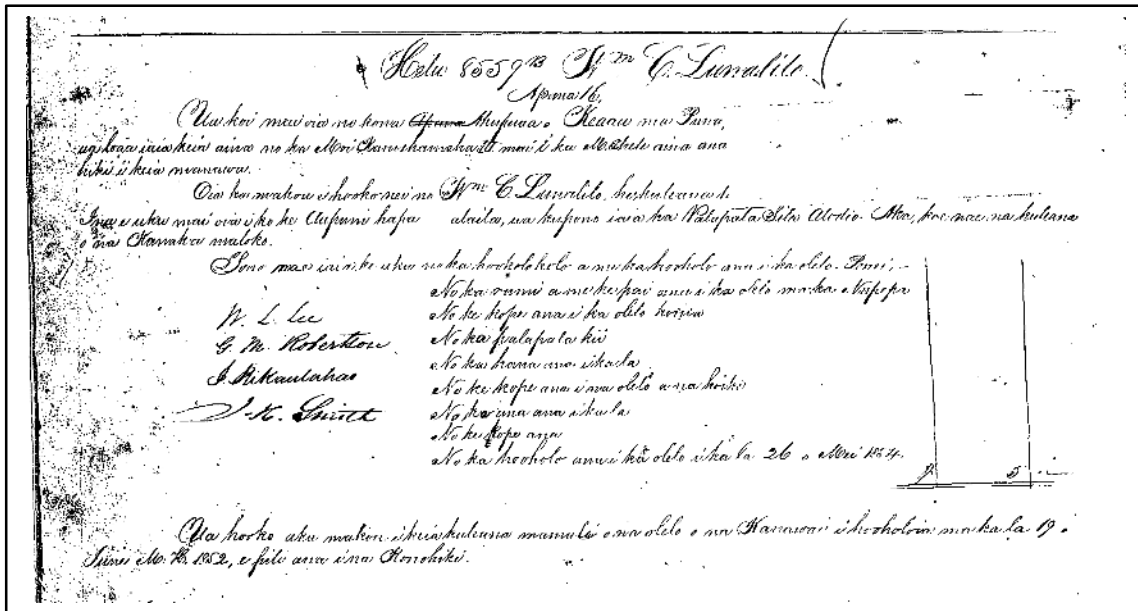 Helu 8559 B Wm C. Lunalilo
Apana 16,
Ua koi mai oia no kona Apana Ahupuaa o Keaau ma Puna,
ua loaa iaia keia aina no ka Moi Kamehameha III mai i ka Mahele aina ana
hiki i keia manawa.
Oia ka makou i hooko nei no Wm C Lunalilo, he kuleana
Ina e uku mai oia i ko ke Aupuni hapa alaila, ua kupono iaia ka Palapala Sila Alodio. Aka, koe nae na kuleana
o na Kanaka maloko.
Eono nae iaia ke uku no ka hookolokolo a me ka hooholo ana i ka olelo. Penei, -
No ka rumi a me ke pai ana i ka olelo ma ka Nupepa
W. L. Lee No ke kope ana i ka olelo hoike
G. M. Robertson. No ka palapala kii
J. Kekaulahao No ka hana ana i ka la
J. H. Smith No ke kope ana i na olelo a na hoike
No ka ana ana i ka la
No ke kope ana
No ka hooholo ana i ka olelo i ka la 26 o Mei 1854.
Ua hooko aku makou i keia kuleana mamuli o na olelo o na Kanawai i hooholoia ma ka la 19 o
Iune M. H. 1852, e pili ana i na Konohiki.